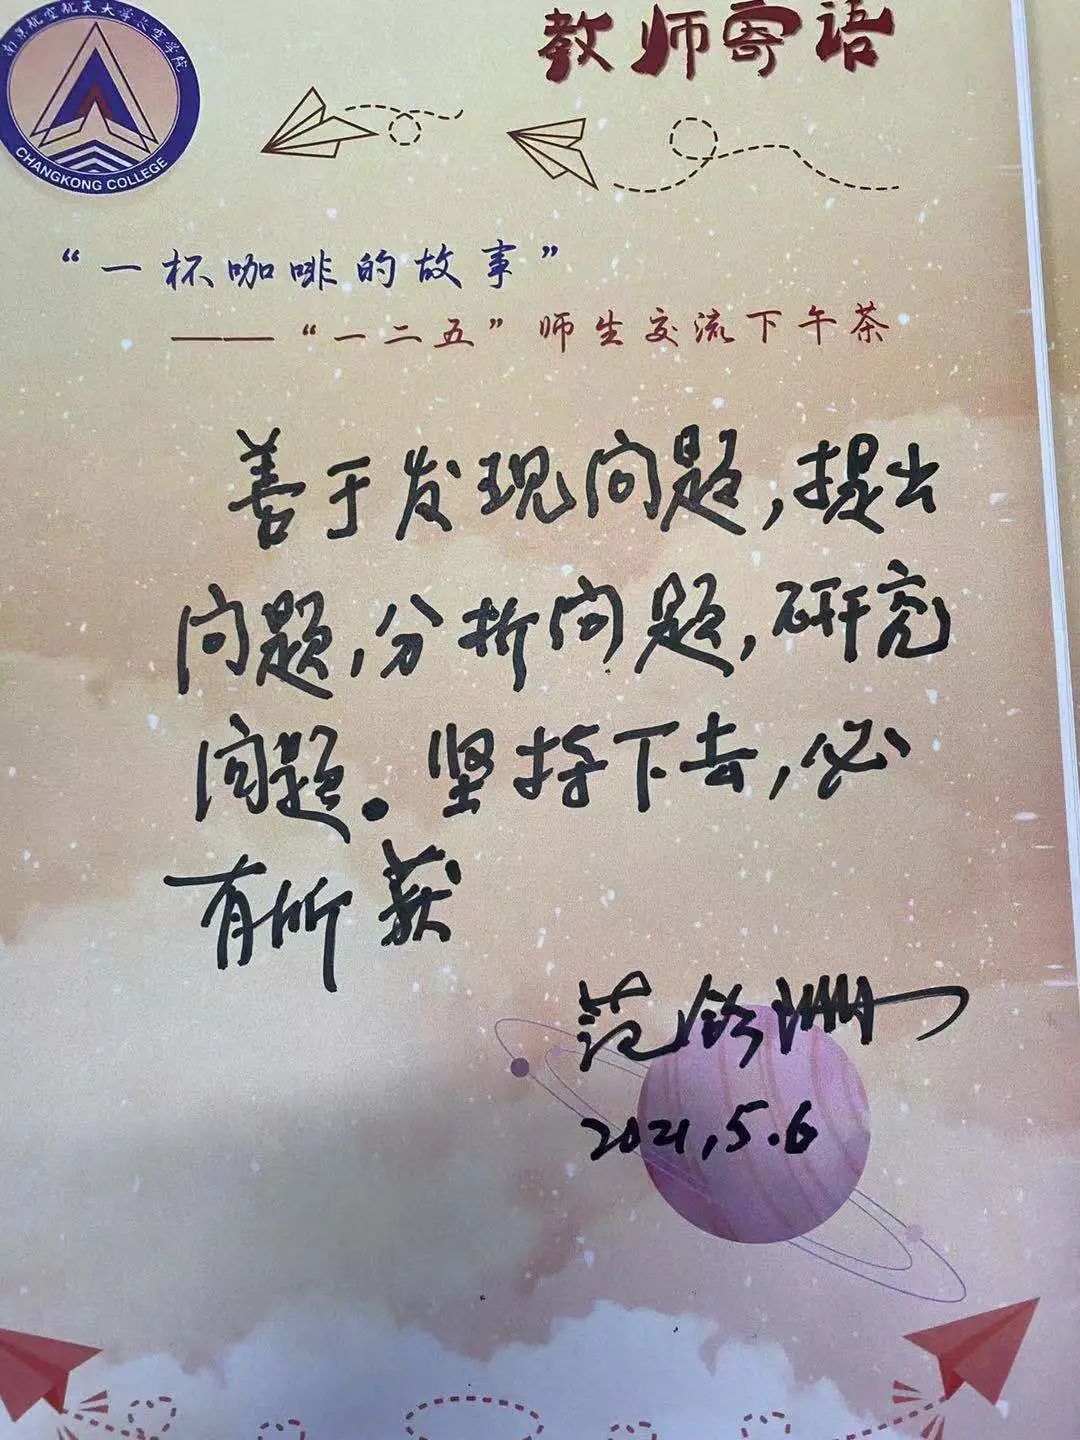 南京航空航天大学长空学院
CHANGKONG COLLEGE
教师寄语
“一杯咖啡的故事”
——“一二五”师生交流下午茶
善于发现问题,提出
问题,分析问题,研究
问题。坚持下去,必
有所获
范
2021.5.6